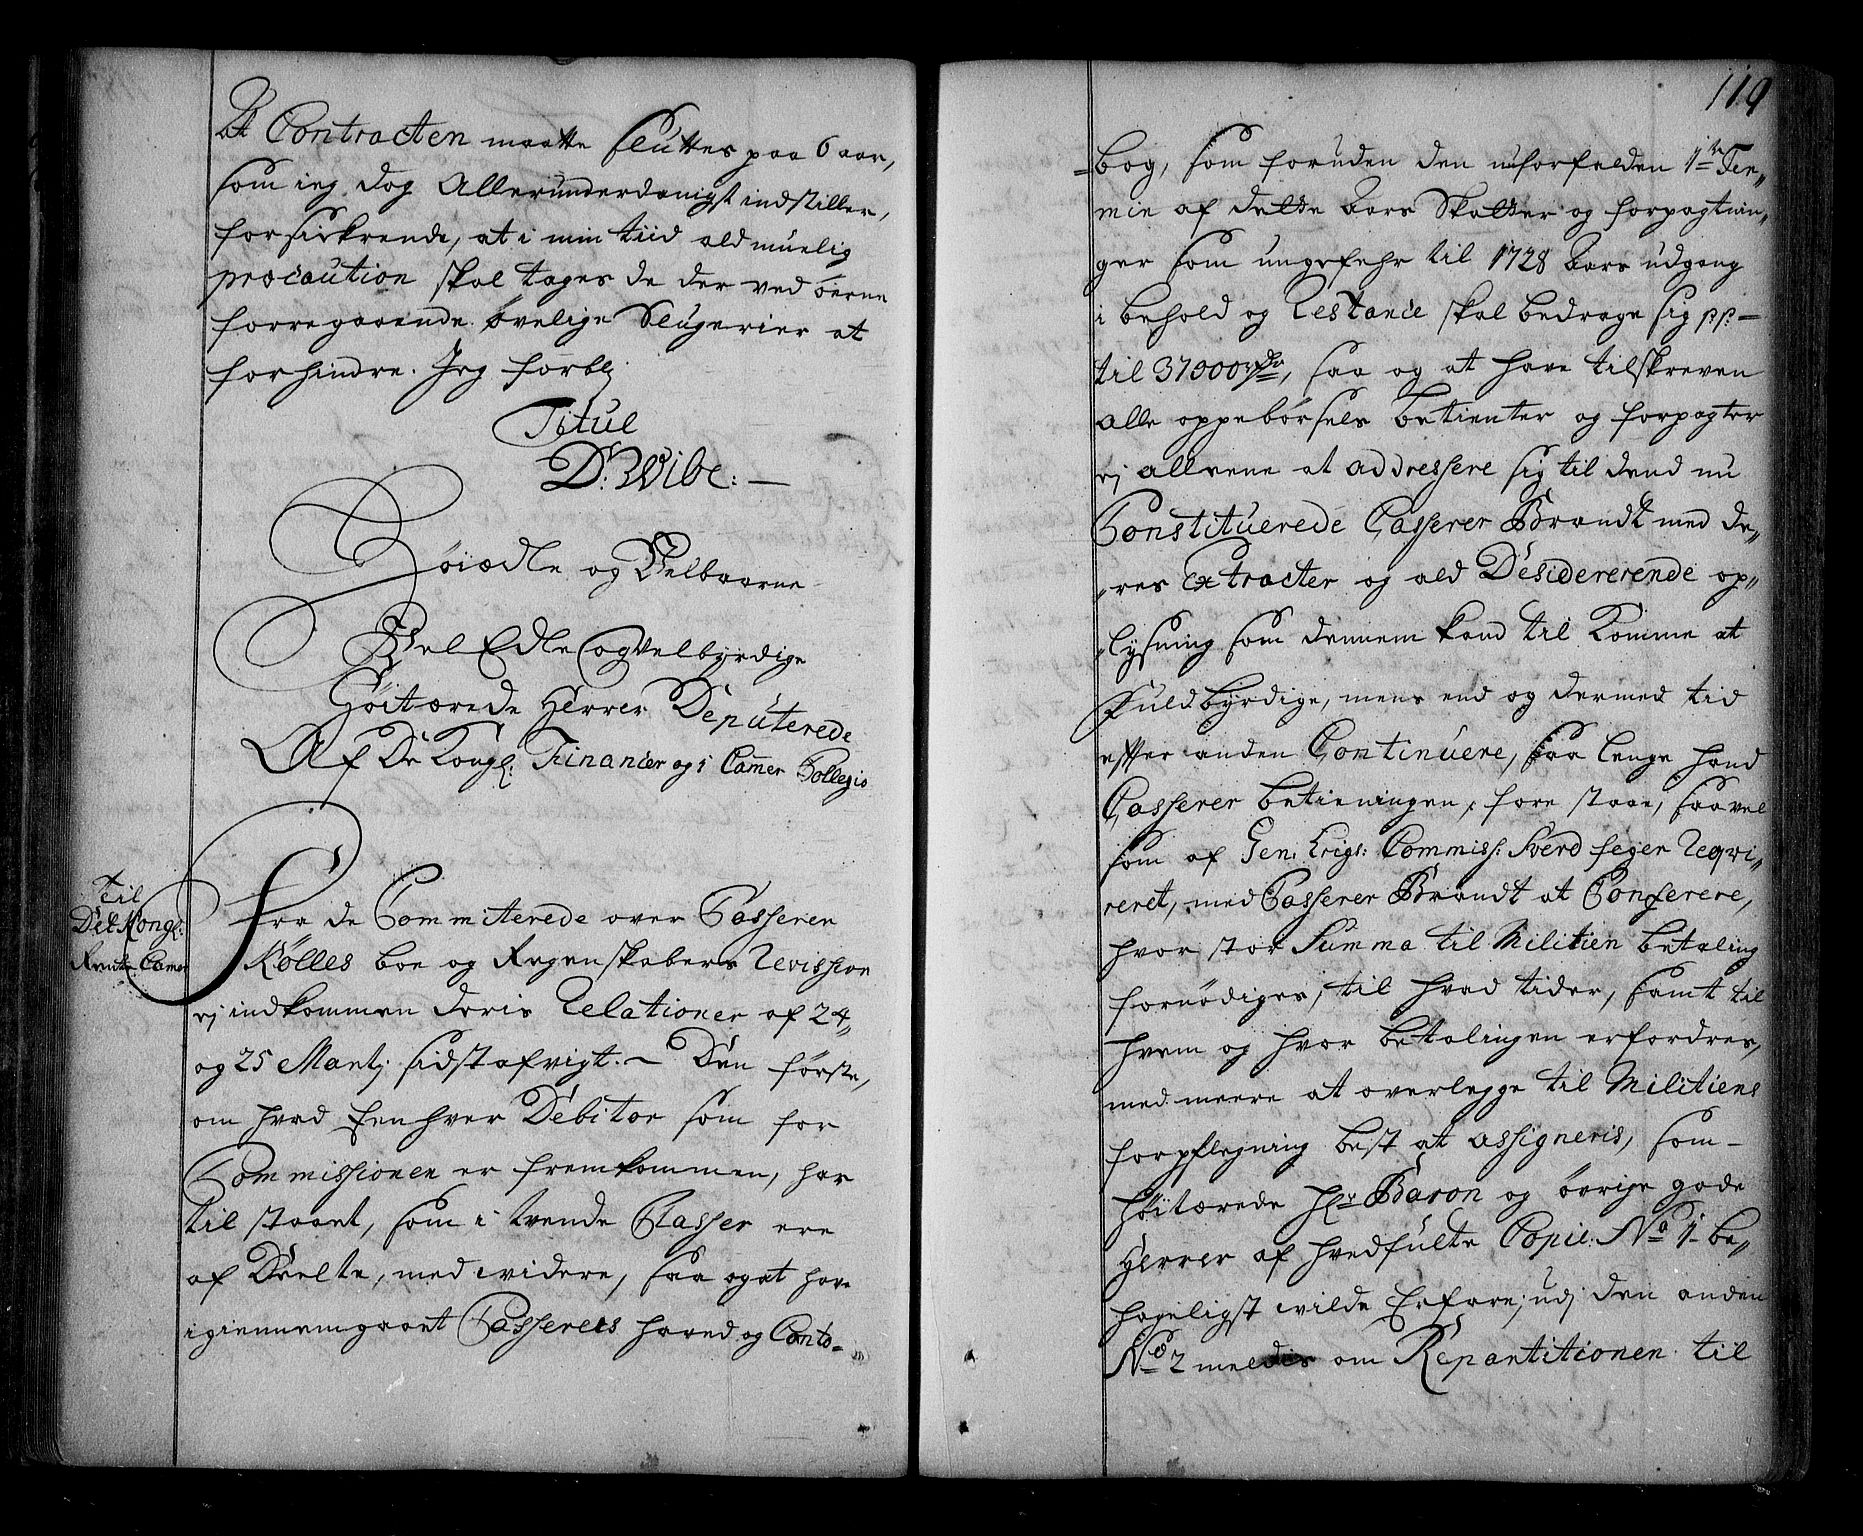 At Contracten maatte sluttes paa 6 aar,
som ieg dog Allerunderdanigst indstiller,
forsickrende, at i min tiid ald muelig
præcaution skal tages de der ved øerne
forregaaende øvelige Slugerier at
forhindre. Jeg forbl.
Titul
D: Wibe: —
Høiædle og Velbaarne
Vel Edle og Velbyrdige
Høitærede Herrer Deputerede
Af De Kongl: Financer og i Camer Collegio
Til
Det Kongl:
Rente Camer
Fra de Committerede over Casserer
Kølles boe og Regenskabers Revission
er indkommen deris Relationer af 24
og 25 Martj sidst afvigt. — Den første,
om hvad Eenhver Debitor som for
Commissionen er fremkommen, har
til staaet, som i tvende Classer ere
af Deelte, med widere, saa og at have
igiennemgaaet Casserers hoved og Conto-
119
-bog, som foruden den uforfalden 1ste Ter-
min af dette Aars Skatter og forpagtnin-
ger som ungefehr til 1728 Aars udgang
i behold og Restance skal bedrage sig pp —
til 37000 rdr, saa og at have tilskreven
alle oppebørsels betienter og forpagter
ej alleene at addressere sig til dend nu
Constituerede Casserer Brandt med de-
-res Extracter og ald Desidererende op-
-lysning som dennem kand til komme at
Fuldbyrdige, mens end og dermed tid
efter anden Continuere, saa lenge hand
Casserer betieningen, forestaae, saavel
som af Gen: Krigs: Commiss: Sverdfeger Reqvi-
reret, med Casserer Brandt at Conferere,
hvor stor Summa til Militien betaling
fornødiges, til hvad tider, samt til
hvem og hvor betalingen erfordres,
med meere at overlegge til Militiens
forpflegning best at assigneris, som —
høitærede Hr Baron og øvrige gode
Herrer af hvedfulte Copie: No 1 be-
hageligst wilde Erfare; udj den anden
No 2 meldes om Repartitionen til